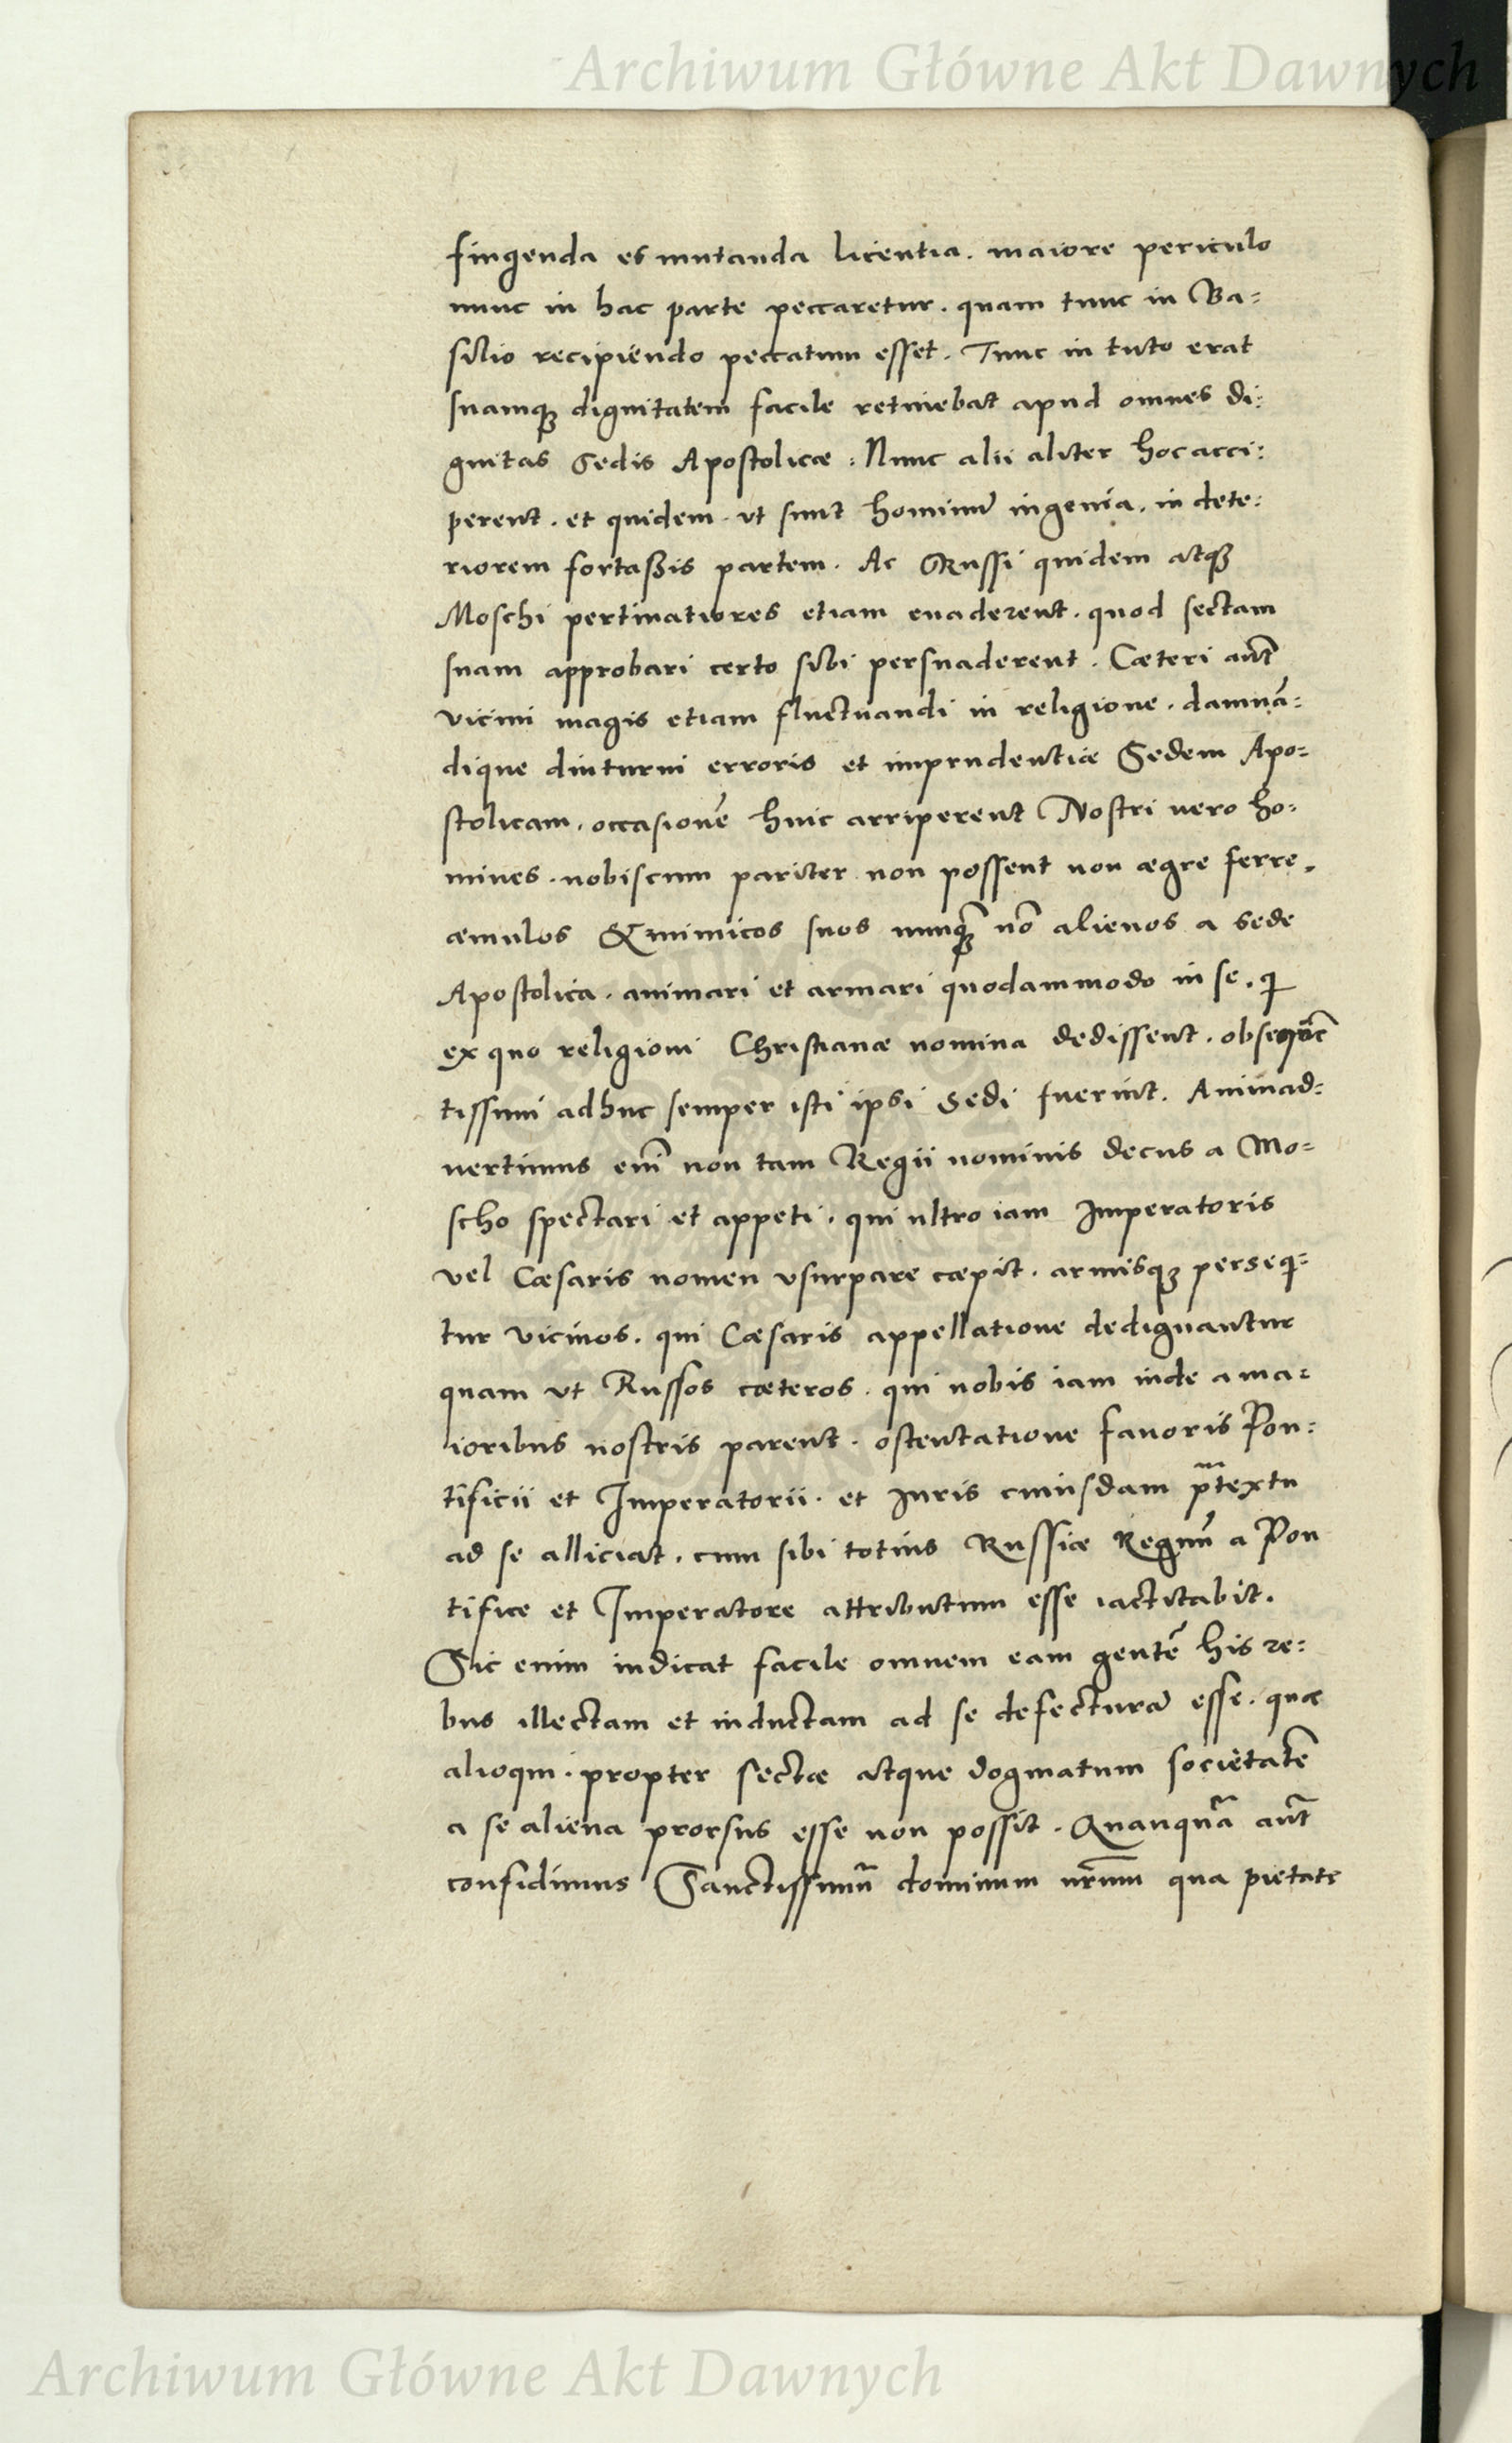 Archiwum Główne Akt Dawnych
fingenda et mutanda licentia. maiore periculo
nunc in hac parte peccaretur. quam tunc in Ba=
silio recipiendo peccatum esset. Tunc in tuto erat
suamqꝫ dignitatem facile retinebat apud omnes di:
gnitas Sedis Apostolicæ: Nunc alii aliter hoc acci:
perent. et quidem. vt sunt hominū ingenia. in dete:
riorem fortaßis partem. Ac Russi quidem atqꝫ
Moschi pertinatiores etiam euaderent. quod sectam
suam approbari certo sibi persuaderent. Cæteri aut̃
vicini magis etiam fluctuandi in religione. damnā:
dique diuturni erroris et imprudentiæ Sedem Apo=
stolicam. occasionē hinc arriperent Nostri uero ho=
mines. nobiscum pariter non possent non ægre ferre.
æmulos & inimicos suos nunqꝫ̃ nō alienos a Sede
Apostolica. animari et armari quodammodo in se. qi
ex quo religioni Christianæ nomina dedissent. obsequẽ
tissimi adhuc semper isti ipsi Sedi fuerint. Animad=
uertimus eni̅ non tam Regii nominis decus a Mo=
scho spectari et appeti. qui ultro iam Imperatoris
vel Cæsaris nomen vsurpare cæpit. armisqꝫ perseq̃=
tur vicinos. qui Cæsaris appellatione dedignantur
quam vt Russos cæteros. qui nobis iam inde a ma=
ioribus nostris parent. ostentatione fauoris Pon:
tificii et Imperatorii. et Iuris cuiusdam p̃textu
ad se alliciat. cum sibi totius Russiæ Regnū a Pon
tifice et Imperatore attributum esse iactitabit.
Sic enim iudicat facile omnem eam gentē his re:
bus illectam et inductam ad se defecturā esse. quæ
alioqui. propter sectæ atque dogmatum societatē
a se aliena prorsus esse non possit. Quanquā aut̃
confidimus Sanctissimū dominum nr̃um qua pietate
Archiwum Główne Akt Dawnych